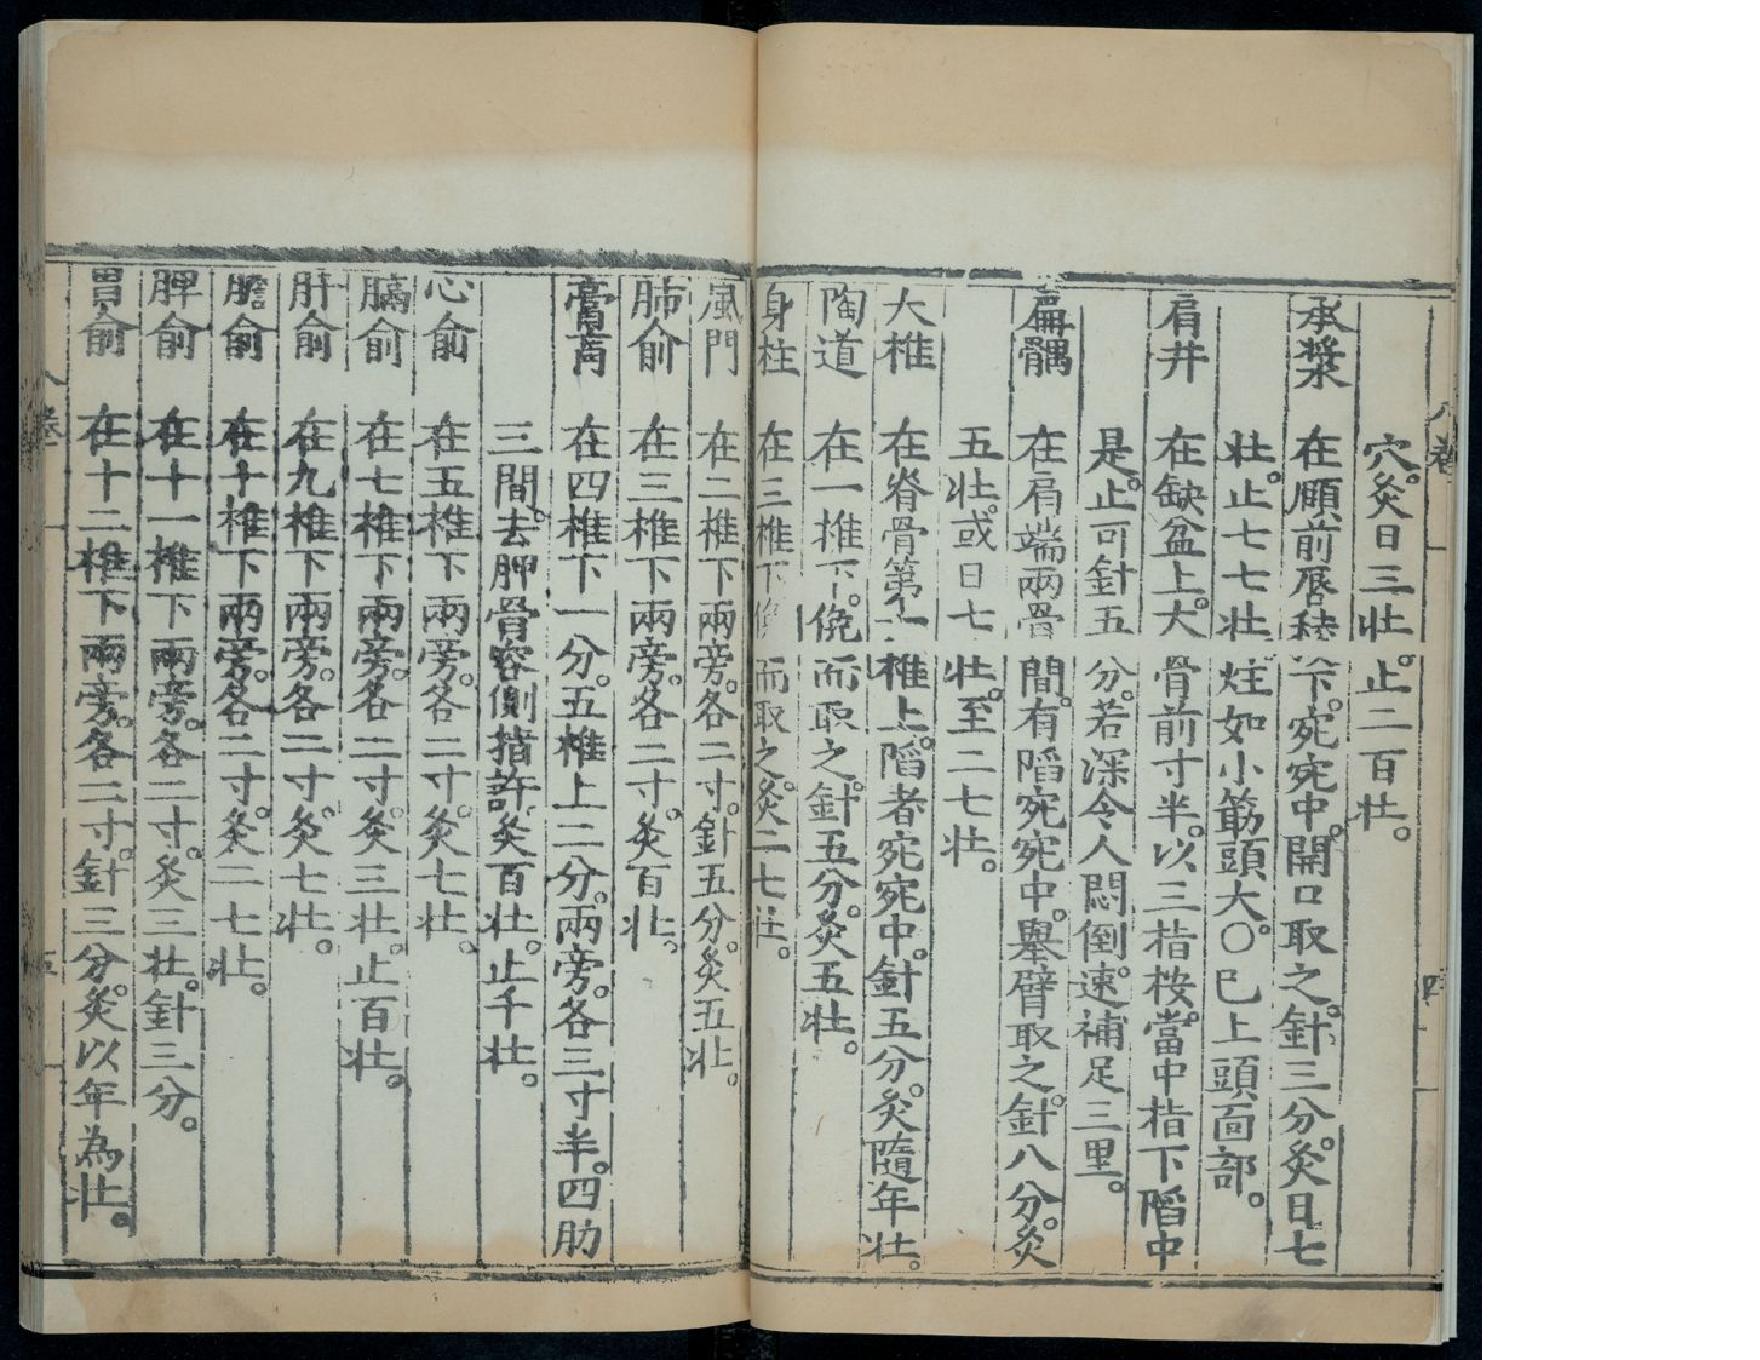 八卷
四
穴。灸日三壯。止二百壯。
承漿 在頤前唇稜下。宛宛中。開口取之。針三分。灸日七
壯。止七七壯。炷如小筯頭大。〇巳上頭面部。
肩井 在缺盆上。大骨前寸半。以三指按。當中指下陷中
是。止可針五分。若深令人悶倒。速補足三里。
肩髃 在肩端兩骨間。有陷宛宛中。舉臂取之。針八分。灸
五壯。或日七壯。至二七壯。
大椎 在脊骨第一椎上。陷者宛宛中。針五分。灸隨年壯。
陶道 在一椎下。俛而取之。針五分。灸五壯。
身柱 在三椎下俛而取之。灸二七壯。
風門 在二椎下兩旁。各二寸。針五分。灸五壯。
肺俞 在三椎下兩旁。各二寸。灸百壯。
膏肓 在四椎下一分。五椎上二分。兩旁。各三寸半。四肋
三間。去胛骨容側指許。灸百壯。止千壯。
心俞 在五椎下兩旁。各二寸。灸七壯。
膈俞 在七椎下兩旁。各二寸。灸三壯。止百壯。
肝俞 在九椎下兩旁。各二寸。灸七壯。
膽俞 在十椎下兩旁。各二寸。灸二七壯。
脾俞 在十一椎下兩旁。各二寸。灸三壯。針三分。
胃俞 在十二椎下兩旁。各二寸。針三分。灸以年為壯。
八卷
五